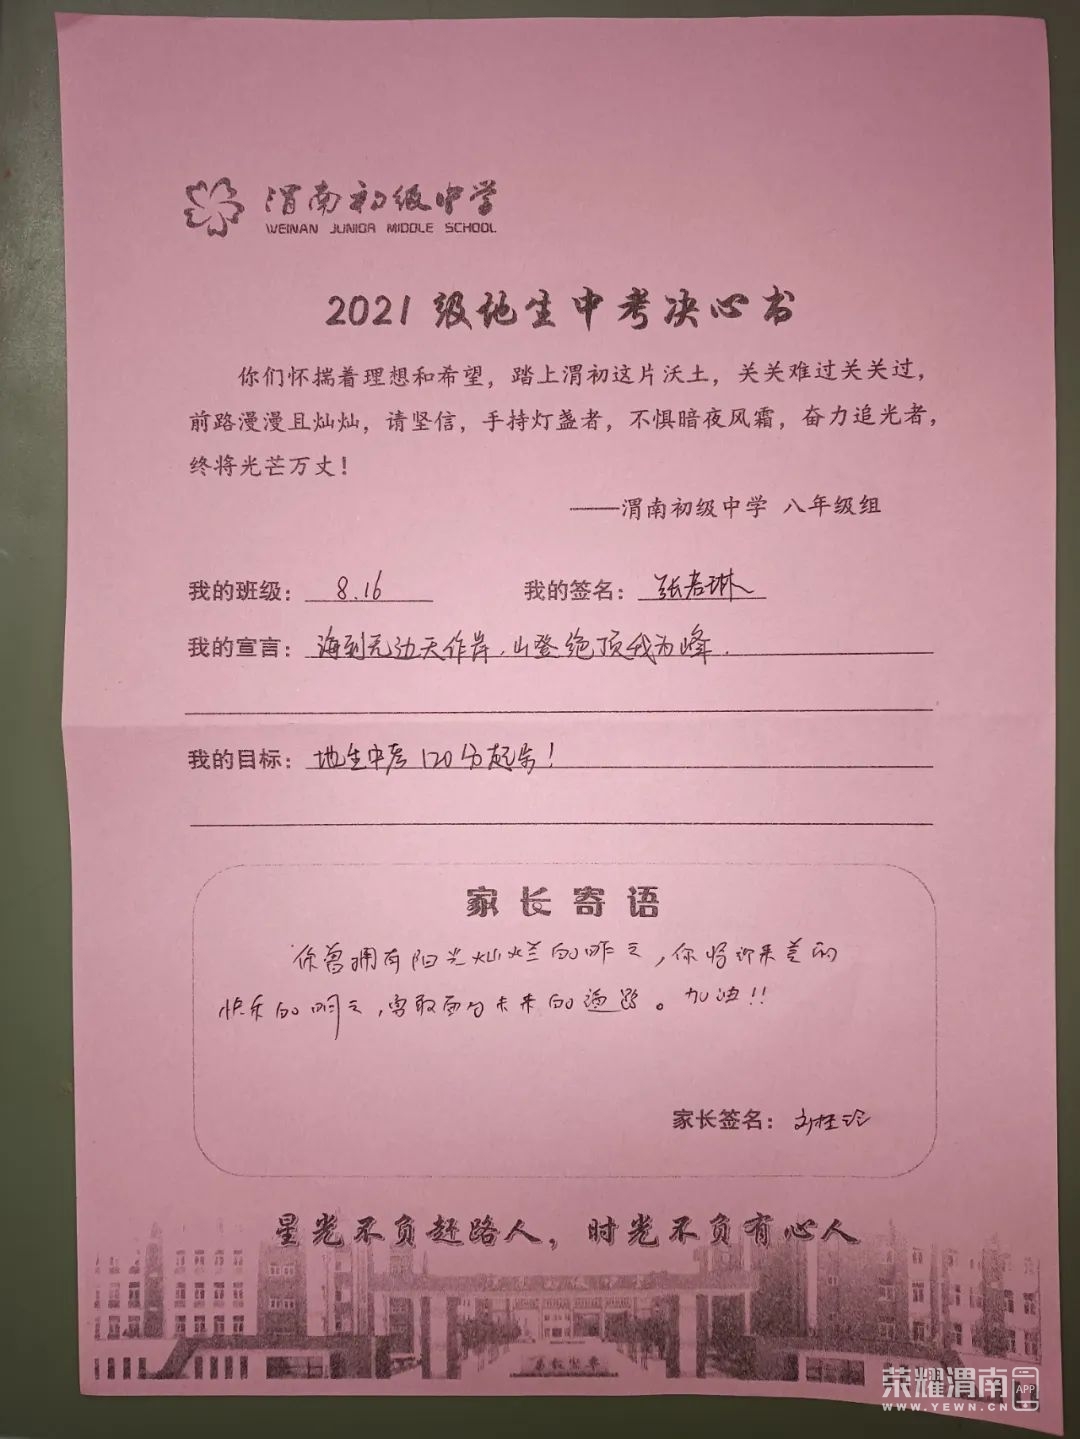 渭南初级中学
WEINAN JUNIOR MIDDLE SCHOOL
2021级地生中考决心书
你们怀揣着理想和希望，踏上渭初这片沃土，关关难过关关过，
前路漫漫且灿灿，请坚信，手持灯盏者，不惧暗夜风霜，奋力追光者，
终将光芒万丈！
——渭南初级中学 八年级组
我的班级： 8.16 我的签名： 张若琳
我的宣言： 海到无边天作岸，山登绝顶我为峰.
我的目标： 地生中考120分起步！
家长寄语
你曾拥有阳光灿烂的昨天，你将迎来美的
快乐的明天，勇敢面对未来的道路。加油!!
家长签名： 刘
星光不负赶路人，时光不负有心人
荣耀渭南 APP
WWW.YEWN.CN